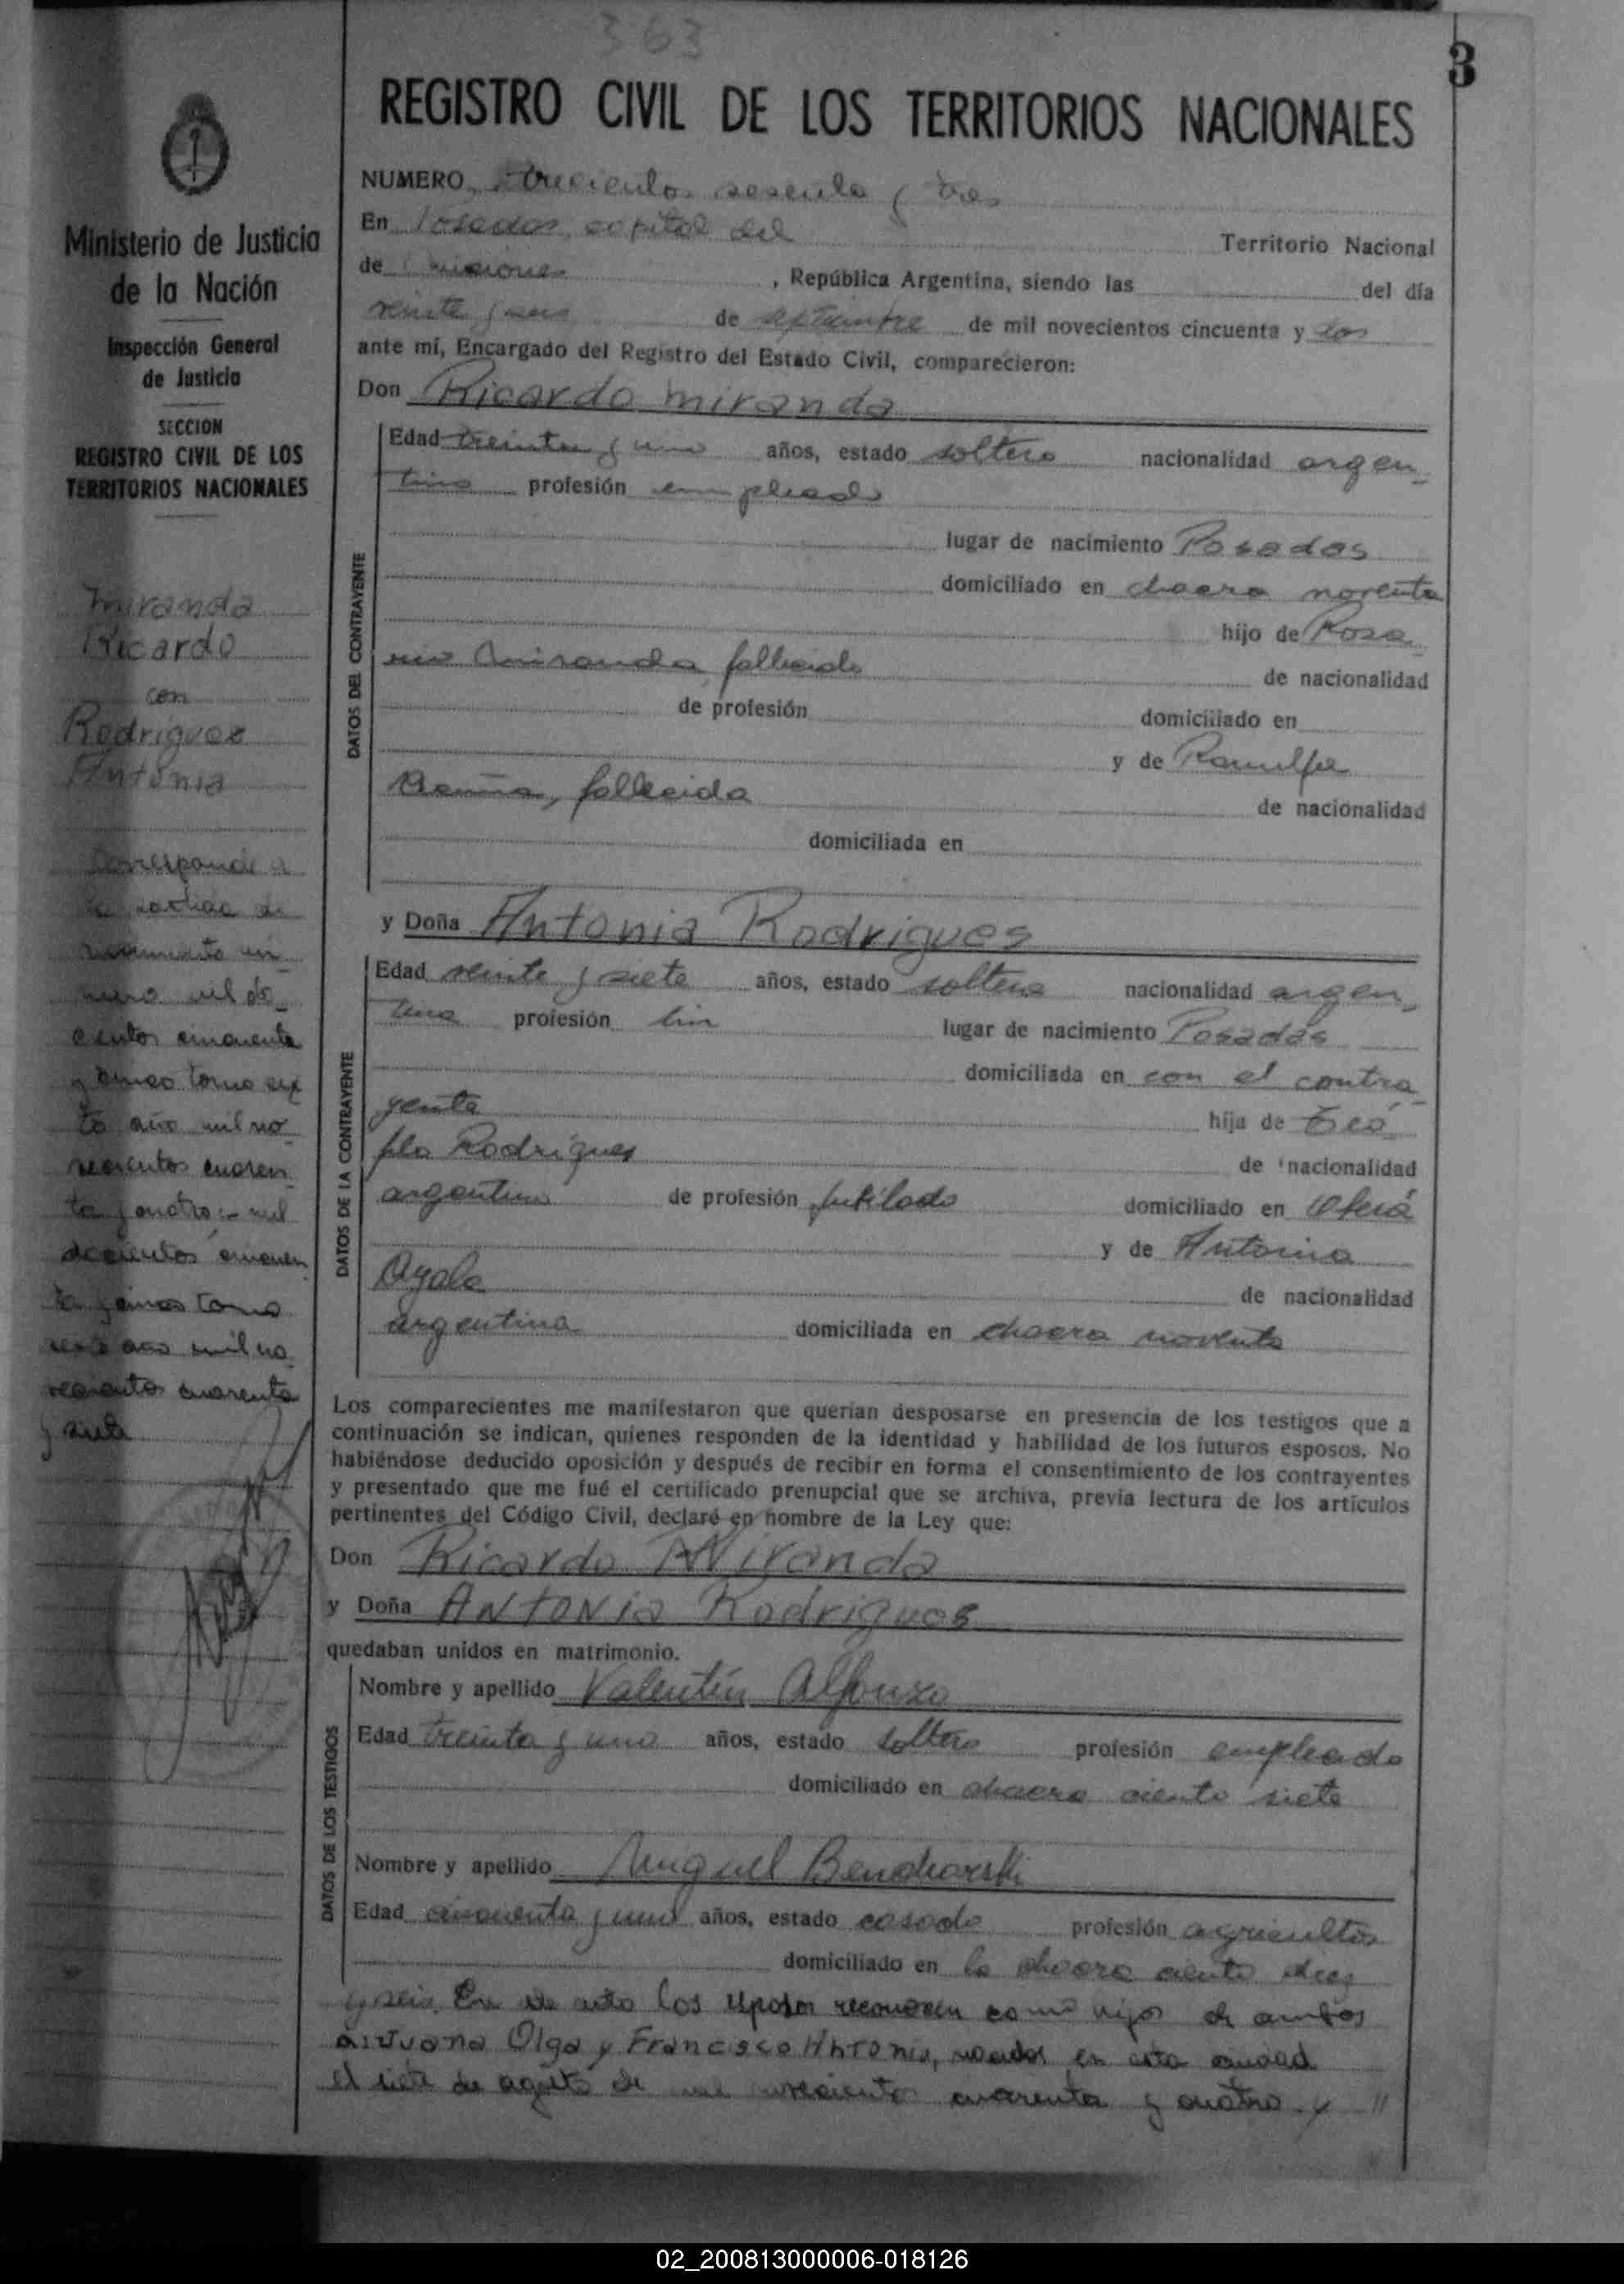 363
3
REGISTRO CIVIL DE LOS TERRITORIOS NACIONALES
Ministerio de Justicia
de la Nación
Inspección General
de Justicia
SECCION
REGISTRO CIVIL DE LOS
TERRITORIOS NACIONALES
Miranda
Ricardo
con
Rodriguez
Antonia
Corresponde a
la partida de
nacimiento un
mil do
cientos cincuenta
y cinco tomo sex
to año mil no
vecientos cuaren
ta y cuatro y mil
doscientos cincuen
ta y cinco tomo
sexto año mil no
vecientos cuarenta
y siete
NUMERO trecientos sesenta y tres
En Posadas, capital del Territorio Nacional
de Misiones , República Argentina, siendo las del día
veinte y seis de septiembre de mil novecientos cincuenta y dos
ante mí, Encargado del Registro del Estado Civil, comparecieron:
Don Ricardo Miranda
DATOS DEL CONTRAYENTE
Edad treinta y uno años, estado soltero nacionalidad argen
tina profesión empleado
lugar de nacimiento Posadas
domiciliado en chacra noventa
hijo de Rosa
rio Miranda fallecido
de nacionalidad
de profesión domiciliado en
y de
fallecida
de nacionalidad
domiciliada en
y Doña Antonia Rodrigues
DATOS DE LA CONTRAYENTE
Edad veinte y siete años, estado soltera nacionalidad argen
tina profesión lugar de nacimiento Posadas
domiciliada en con el contra
yente hija de Teó
filo Rodrigues
de nacionalidad
argentino de profesión jubilado domiciliado en Oberá
y de Antonia
Ayala
de nacionalidad
argentina domiciliada en chacra noventa
Los comparecientes me manifestaron que querían desposarse en presencia de los testigos que a
continuación se indican, quienes responden de la identidad y habilidad de los futuros esposos. No
habiéndose deducido oposición y después de recibir en forma el consentimiento de los contrayentes
y presentado que me fué el certificado prenupcial que se archiva, previa lectura de los artículos
pertinentes del Código Civil, declaré en nombre de la Ley que:
Don Ricardo Miranda
y Doña Antonia Rodrigues
quedaban unidos en matrimonio.
DATOS DE LOS TESTIGOS
Nombre y apellido Valentín Alfonzo
Edad treinta y uno años, estado soltero profesión empleado
domiciliado en chacra ciento siete
Nombre y apellido Miguel
Edad cincuenta y uno años, estado casado profesión agricultor
domiciliado en la chacra ciento diez
y seis. En este acto los esposos reconocen como hijos de ambos
a: Juana Olga y Francisco Antonio, nacidos en esta ciudad
el siete de agosto de mil novecientos cuarenta y cuatro y //
02_200813000006-018126